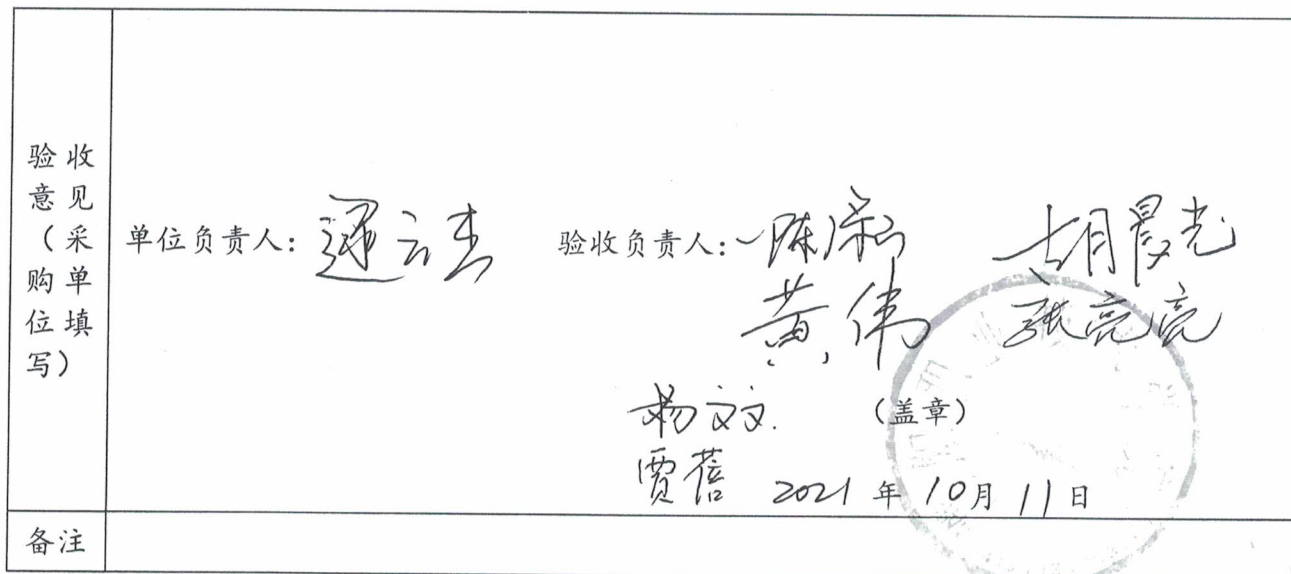 验收
意见
（采
购单
位填
写）
单位负责人： 验收负责人： 胡晨光
黄伟 张亮亮
杨文文 （盖章）
贾蓓 2021年10月11日
备注